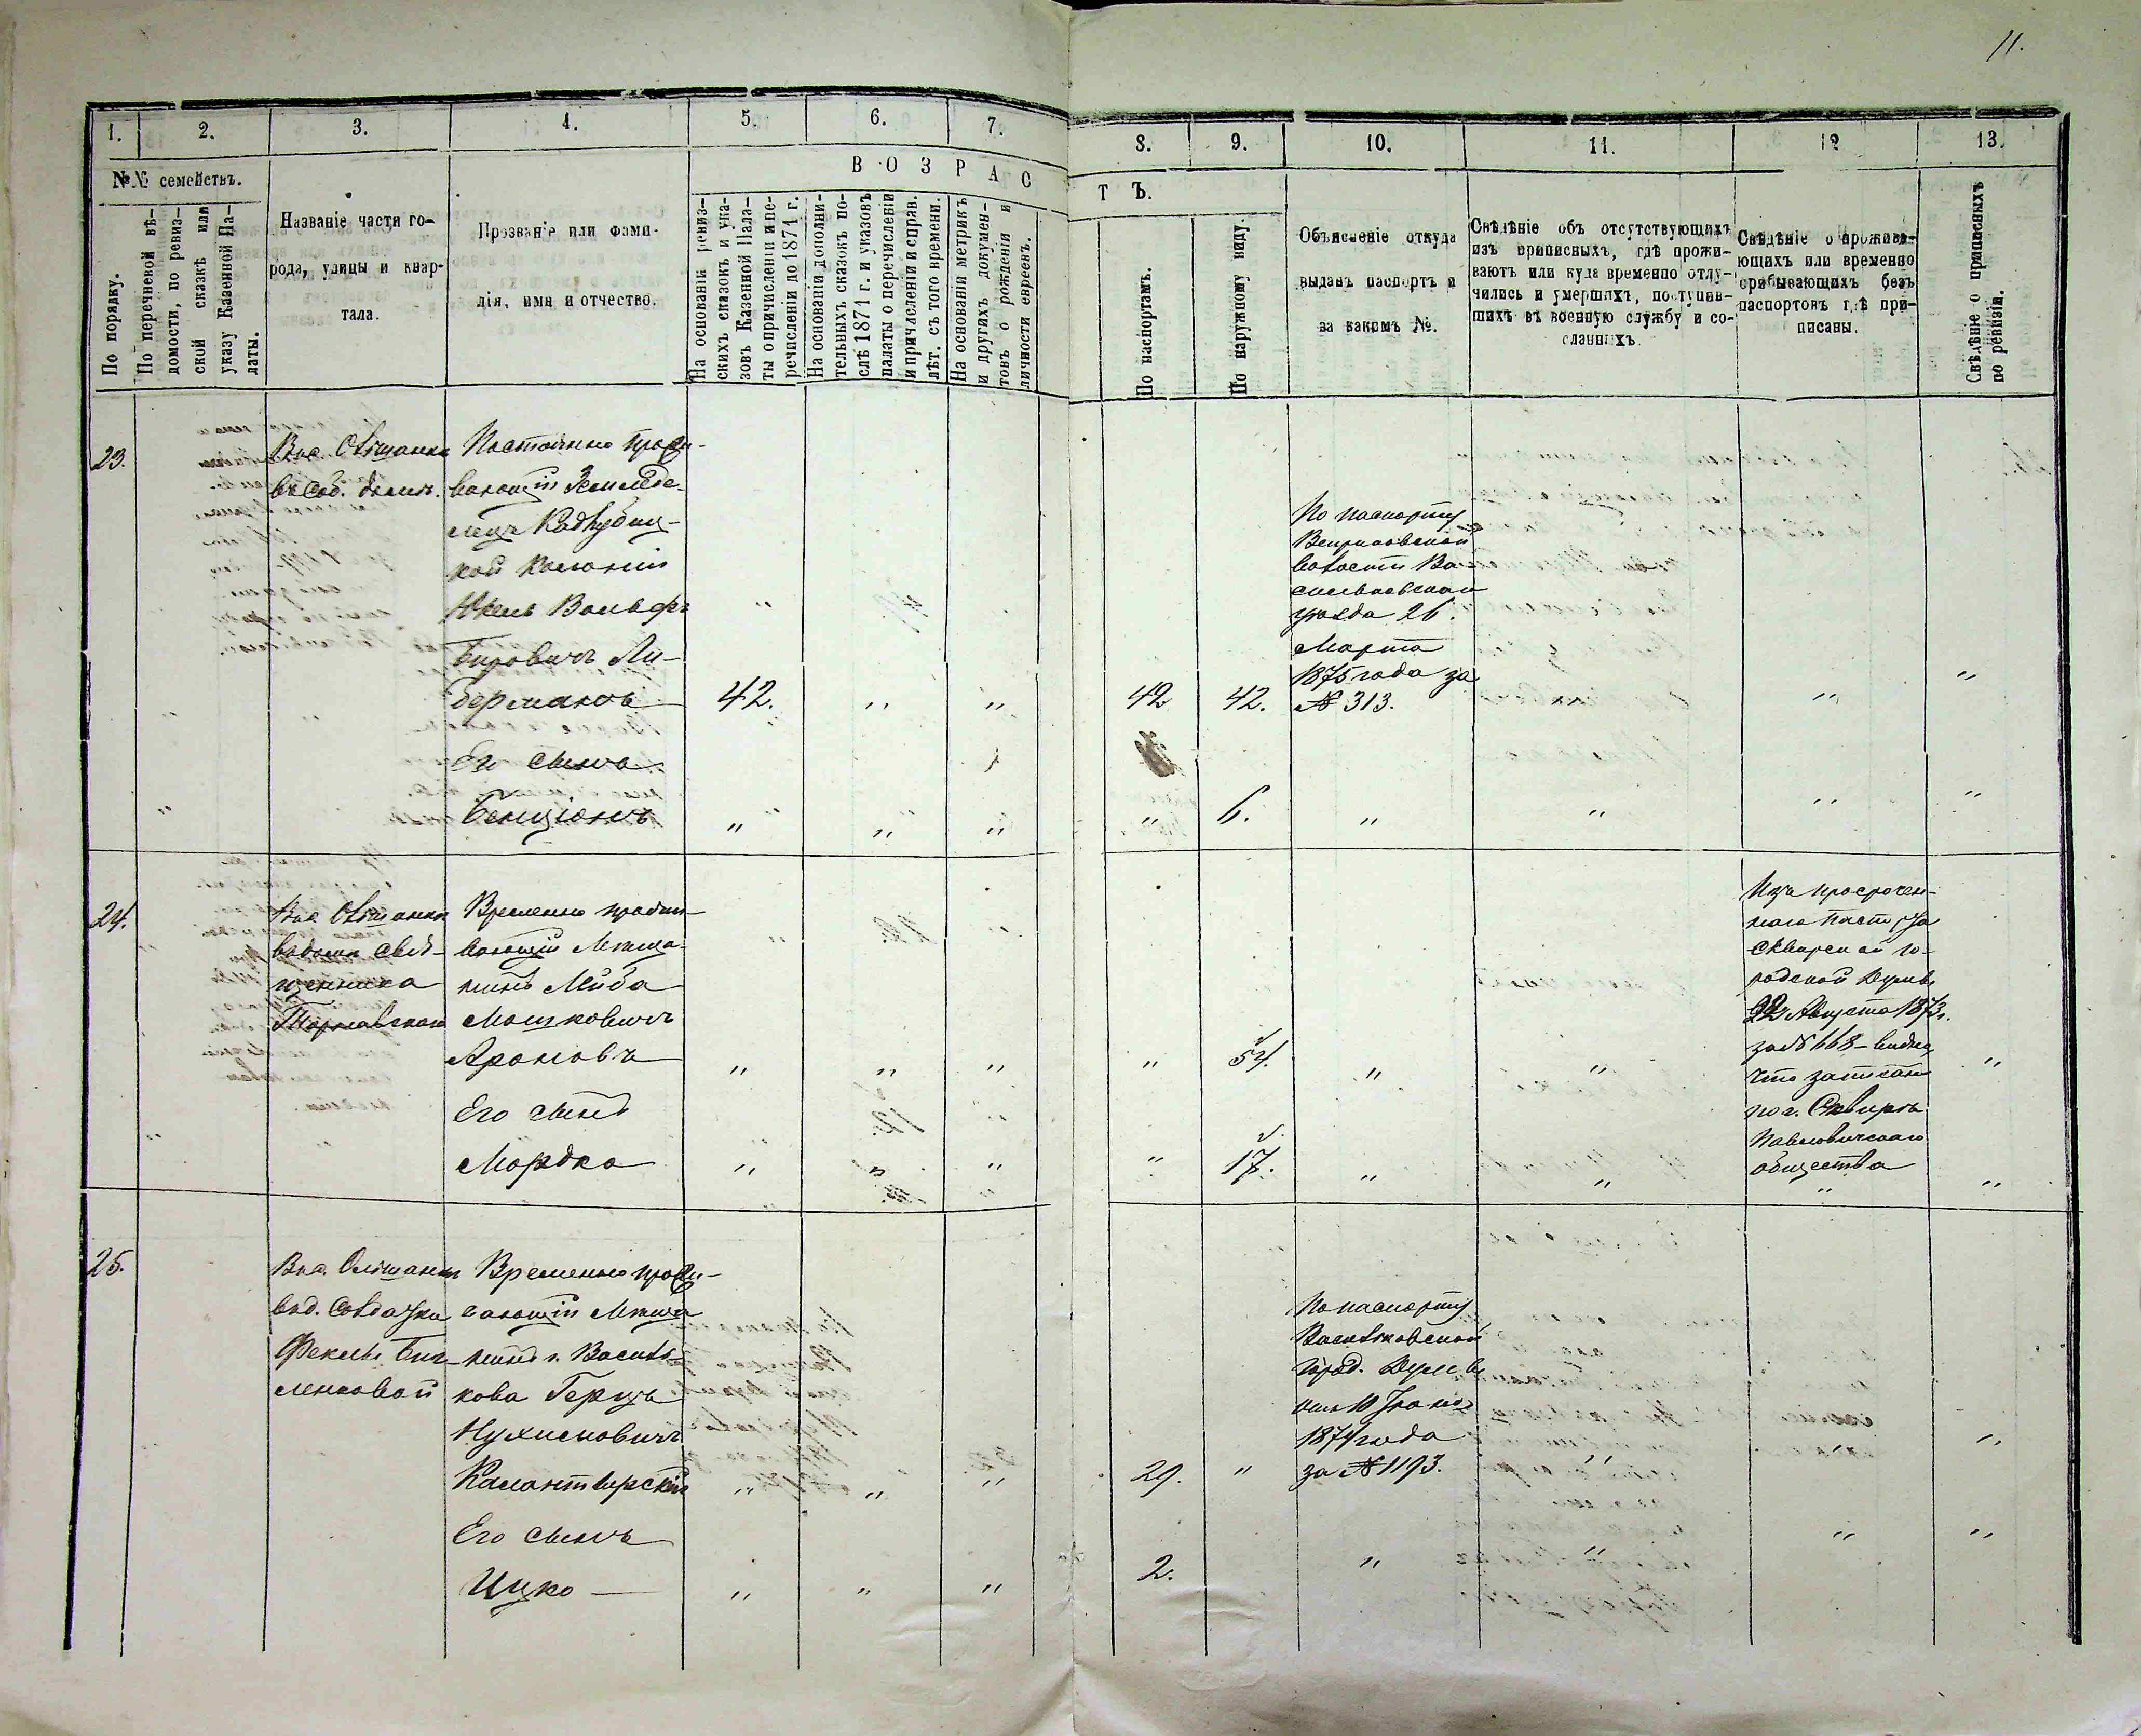 11.
1.
2.
3.
4.
5.
6.
7.
8.
9.
10.
11.
12
13.
№№ семействъ.
ВОЗРАСТЪ.
По порядку.
По перечневой вѣ-
домости, по ревиз-
ской сказкѣ или
указу Казенной Па-
латы.
Названіе части го-
рода, улицы и квар-
тала.
Прозваніе или фами-
лія, имя и отчество.
На основаніи ревиз-
скихъ сказокъ и ука-
зовъ Казенной Пала-
ты о причисленіи и пе-
речисленіи до 1871 г.
На основаніи дополни-
тельныхъ сказокъ по-
слѣ 1871 г. и указовъ
палаты о перечисленіи
и причисленіи и справ.
лѣт. съ того времени.
На основаніи метрикъ
и другихъ докумен-
товъ о рожденіи и
личности евреевъ.
По паспортамъ.
По наружному виду.
Объясненіе откуда
выданъ паспортъ и
за какимъ №.
Свѣдѣніе объ отсутствующихъ
изъ приписныхъ, гдѣ прожи-
ваютъ или куда временно отлу-
чились и умершихъ, поступив-
шихъ въ военную службу и со-
сланныхъ.
Свѣдѣніе о прожива-
ющихъ или временно
прибывающихъ безъ
паспортовъ гдѣ при-
писаны.
Свѣдѣніе о приписныхъ
по ревизіи.
23.
Ольшанка
въ соб. домѣ.
Постоянно прожи-
вающій Земледѣ-
лецъ
кой Колоніи
Юкель Вольфъ
Беровичъ Ли-
берманъ
42.
"
"
42
42.
По паспорту
Веприковской
волости Ва-
сильковскаго
уѣзда 26.
Марта
1875 года за
№ 313.
"
"
Его сынъ
Бенціонъ
"
"
"
"
6.
"
"
"
"
24.
Ольшанка
въ домѣ свя-
щенника
Тарнавскаго
Временно прожи-
вающій Мѣща-
нинъ Лейба
Мошковичъ
Ароновъ
"
"
"
"
54.
"
"
Изъ просрочен-
наго
Сквирской го-
родской Думы
22 Августа 1873 г.
за № 668 – видно
что записанъ
по г. Сквирѣ
Паволочскаго
общества
"
Его сынъ
Мордко
"
"
"
"
17.
"
"
"
"
25.
Ольшанка
въ д. Солдатки
Феклы
Временно прожи-
вающій Мѣща-
нинъ г. Василь-
кова Герцъ
Нухимовичъ
Калантырскій
"
"
"
29.
"
По паспорту
Васильковской
Город. Думы
10
1874 года
за № 1193.
"
"
"
Его сынъ
Ицко
"
"
"
2.
"
"
"
"